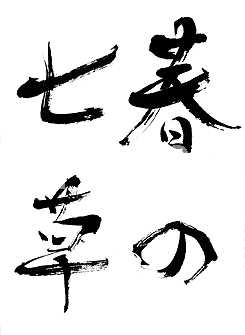 春の
七草